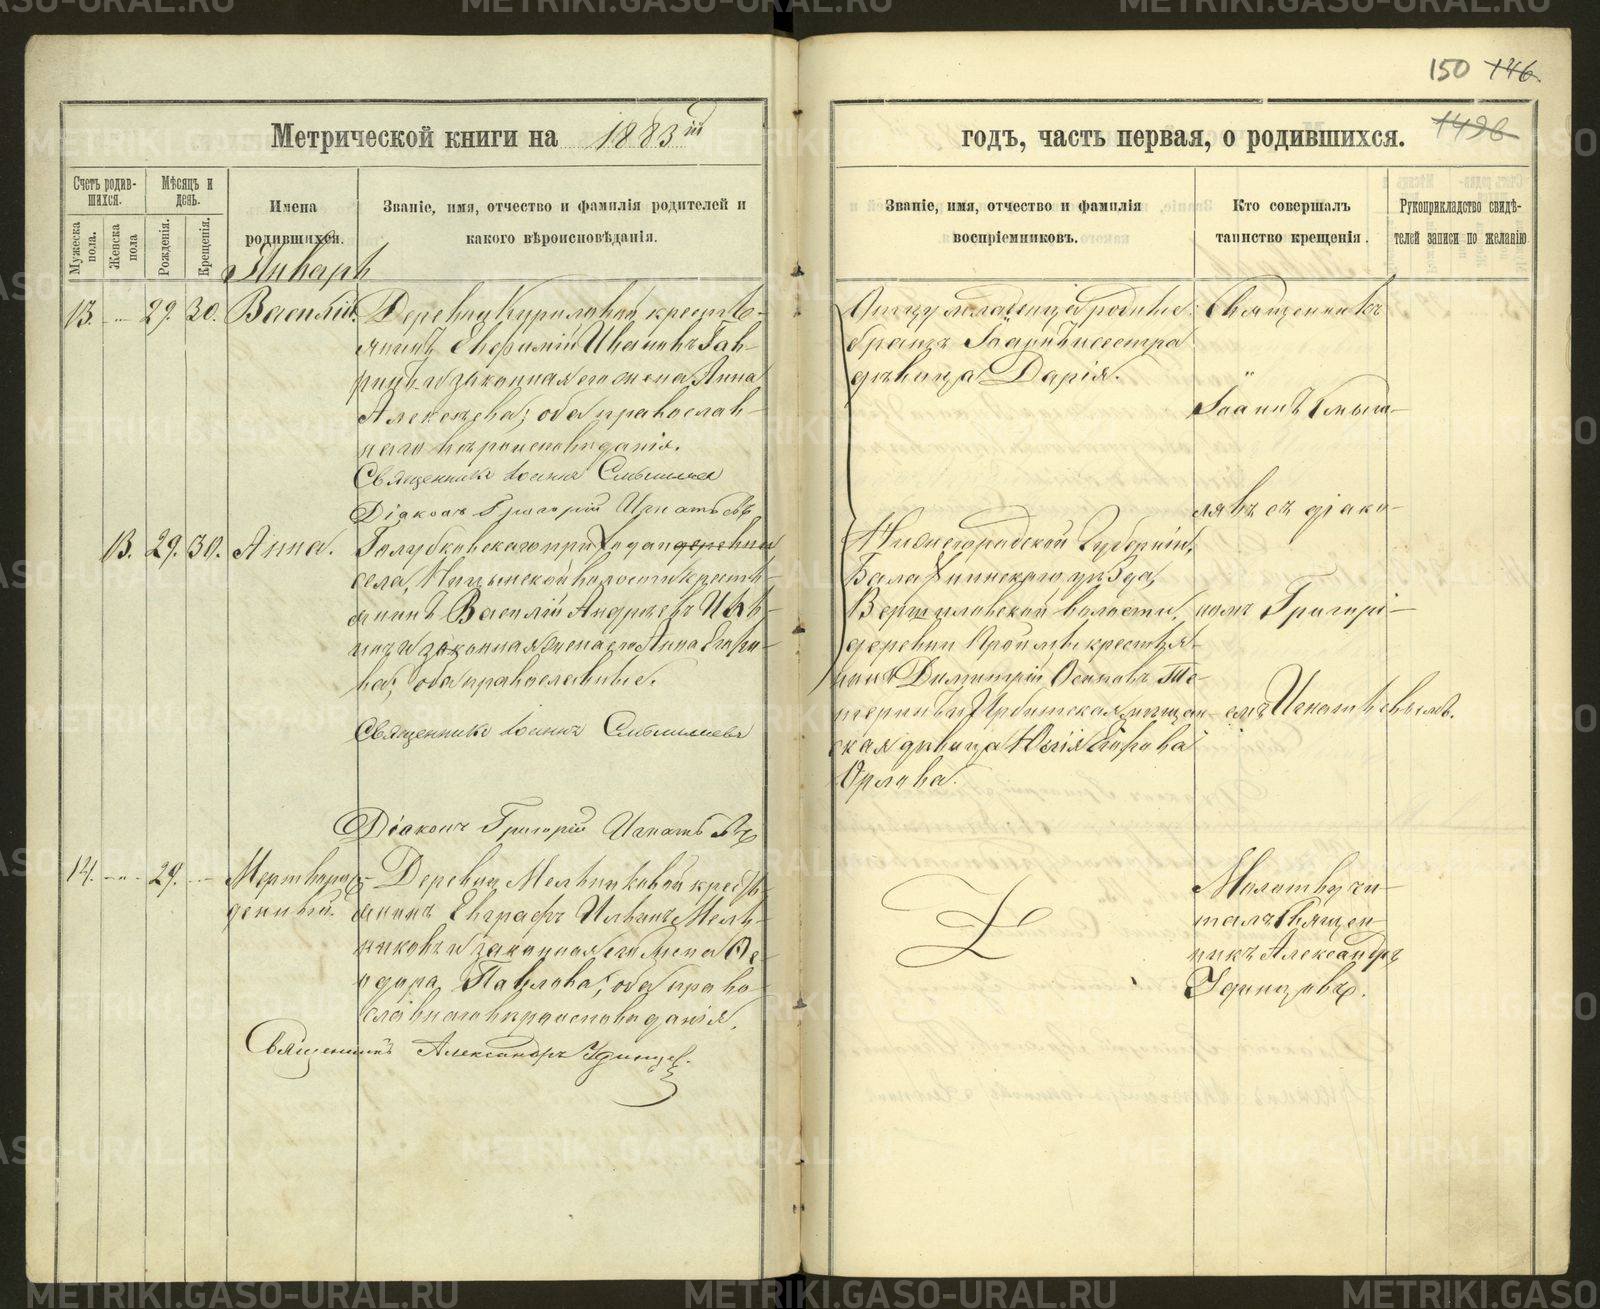 150 146
1496
Метрической книги на 1883й
годъ, часть первая, о родившихся.
Счетъ родив-
шихся.
Мѣсяцъ и
день.
Имена
родившихся.
Званіе, имя, отчество и фамилія родителей и
какого вѣроисповѣданія.
Мужеска
пола.
Женска
пола
Рожденія.
Крещенія.
Званіе, имя, отчество и фамилія
воспріемниковъ.
Кто совершалъ
таинство крещенія.
Рукоприкладство свидѣ-
телей записи по желанію
Январь
13. 29. 30. Василій.
Деревни Куриловой кресть-
янинъ Евфимій Ивановъ Гав-
ринъ и законная его жена Анна
Алексѣева; оба православ-
наго вѣроисповѣданія.
Священникъ Іоаннъ
Діаконъ Григорій Игнатьевъ
Отцу младенца родные:
братъ Іоаннъ и сестра
дѣвица Дарія.
Священникъ
Іоаннъ Смыш-
ляевъ съ діако-
номъ Григорі-
емъ Игнатьевымъ.
13. 29. 30. Анна.
Голубковскаго прихода деревни
села, Ницынской волости кресть-
янинъ Василій Андреевъ
и законная жена его Анна Егоро-
ва; оба православные.
Священникъ Іоаннъ Смышляевъ
Діаконъ Григорій Игнатьевъ
Нижегородской Губерніи,
Балахнинскаго уѣзда,
Вершиловской волости,
деревни крестья-
нинъ Димитрій Осиповъ Те-
теринъ и Ирбитская мѣщан-
ская дѣвица Юлія Егорова
Орлова.
14. 29. Мертворож-
денный.
Деревни Мельниковой кресть-
янинъ Евграфъ Ильинъ Мель-
никовъ и законная его жена Ѳе-
одора Павлова; оба право-
славнаго вѣроисповѣданія.
Священникъ Александръ Удинцевъ.
Молитву чи-
талъ Священ-
никъ Александръ
Удинцовъ.
METRIKI.GASO-URAL.RU